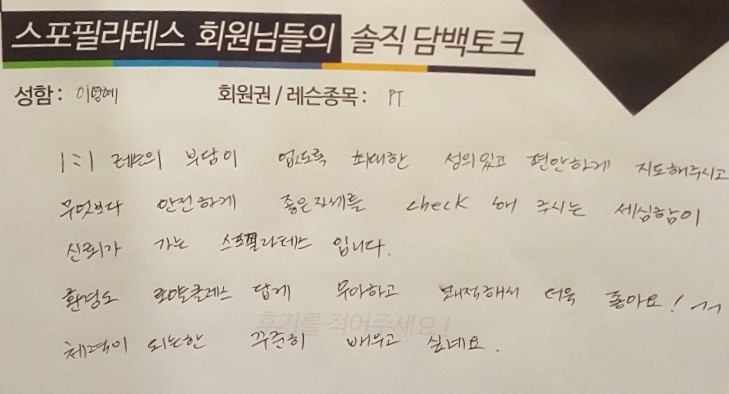 스포필라테스 회원님들의 솔직 담백토크
성함 : 이명혜 회원권 / 레슨종목 : PT
1:1 레슨의 부담이 없도록 최대한 성의있고 편안하게 지도해주시고
무엇보다 안전하게 좋은자세를 check 해 주시는 세심함이
신뢰가 가는 스포필라테스 입니다.
환경도 로얄클래스 답게 우아하고 쾌적해서 더욱 좋아요! ^^
후기를 적어주세요!
체력이 되는한 꾸준히 배우고 싶네요.